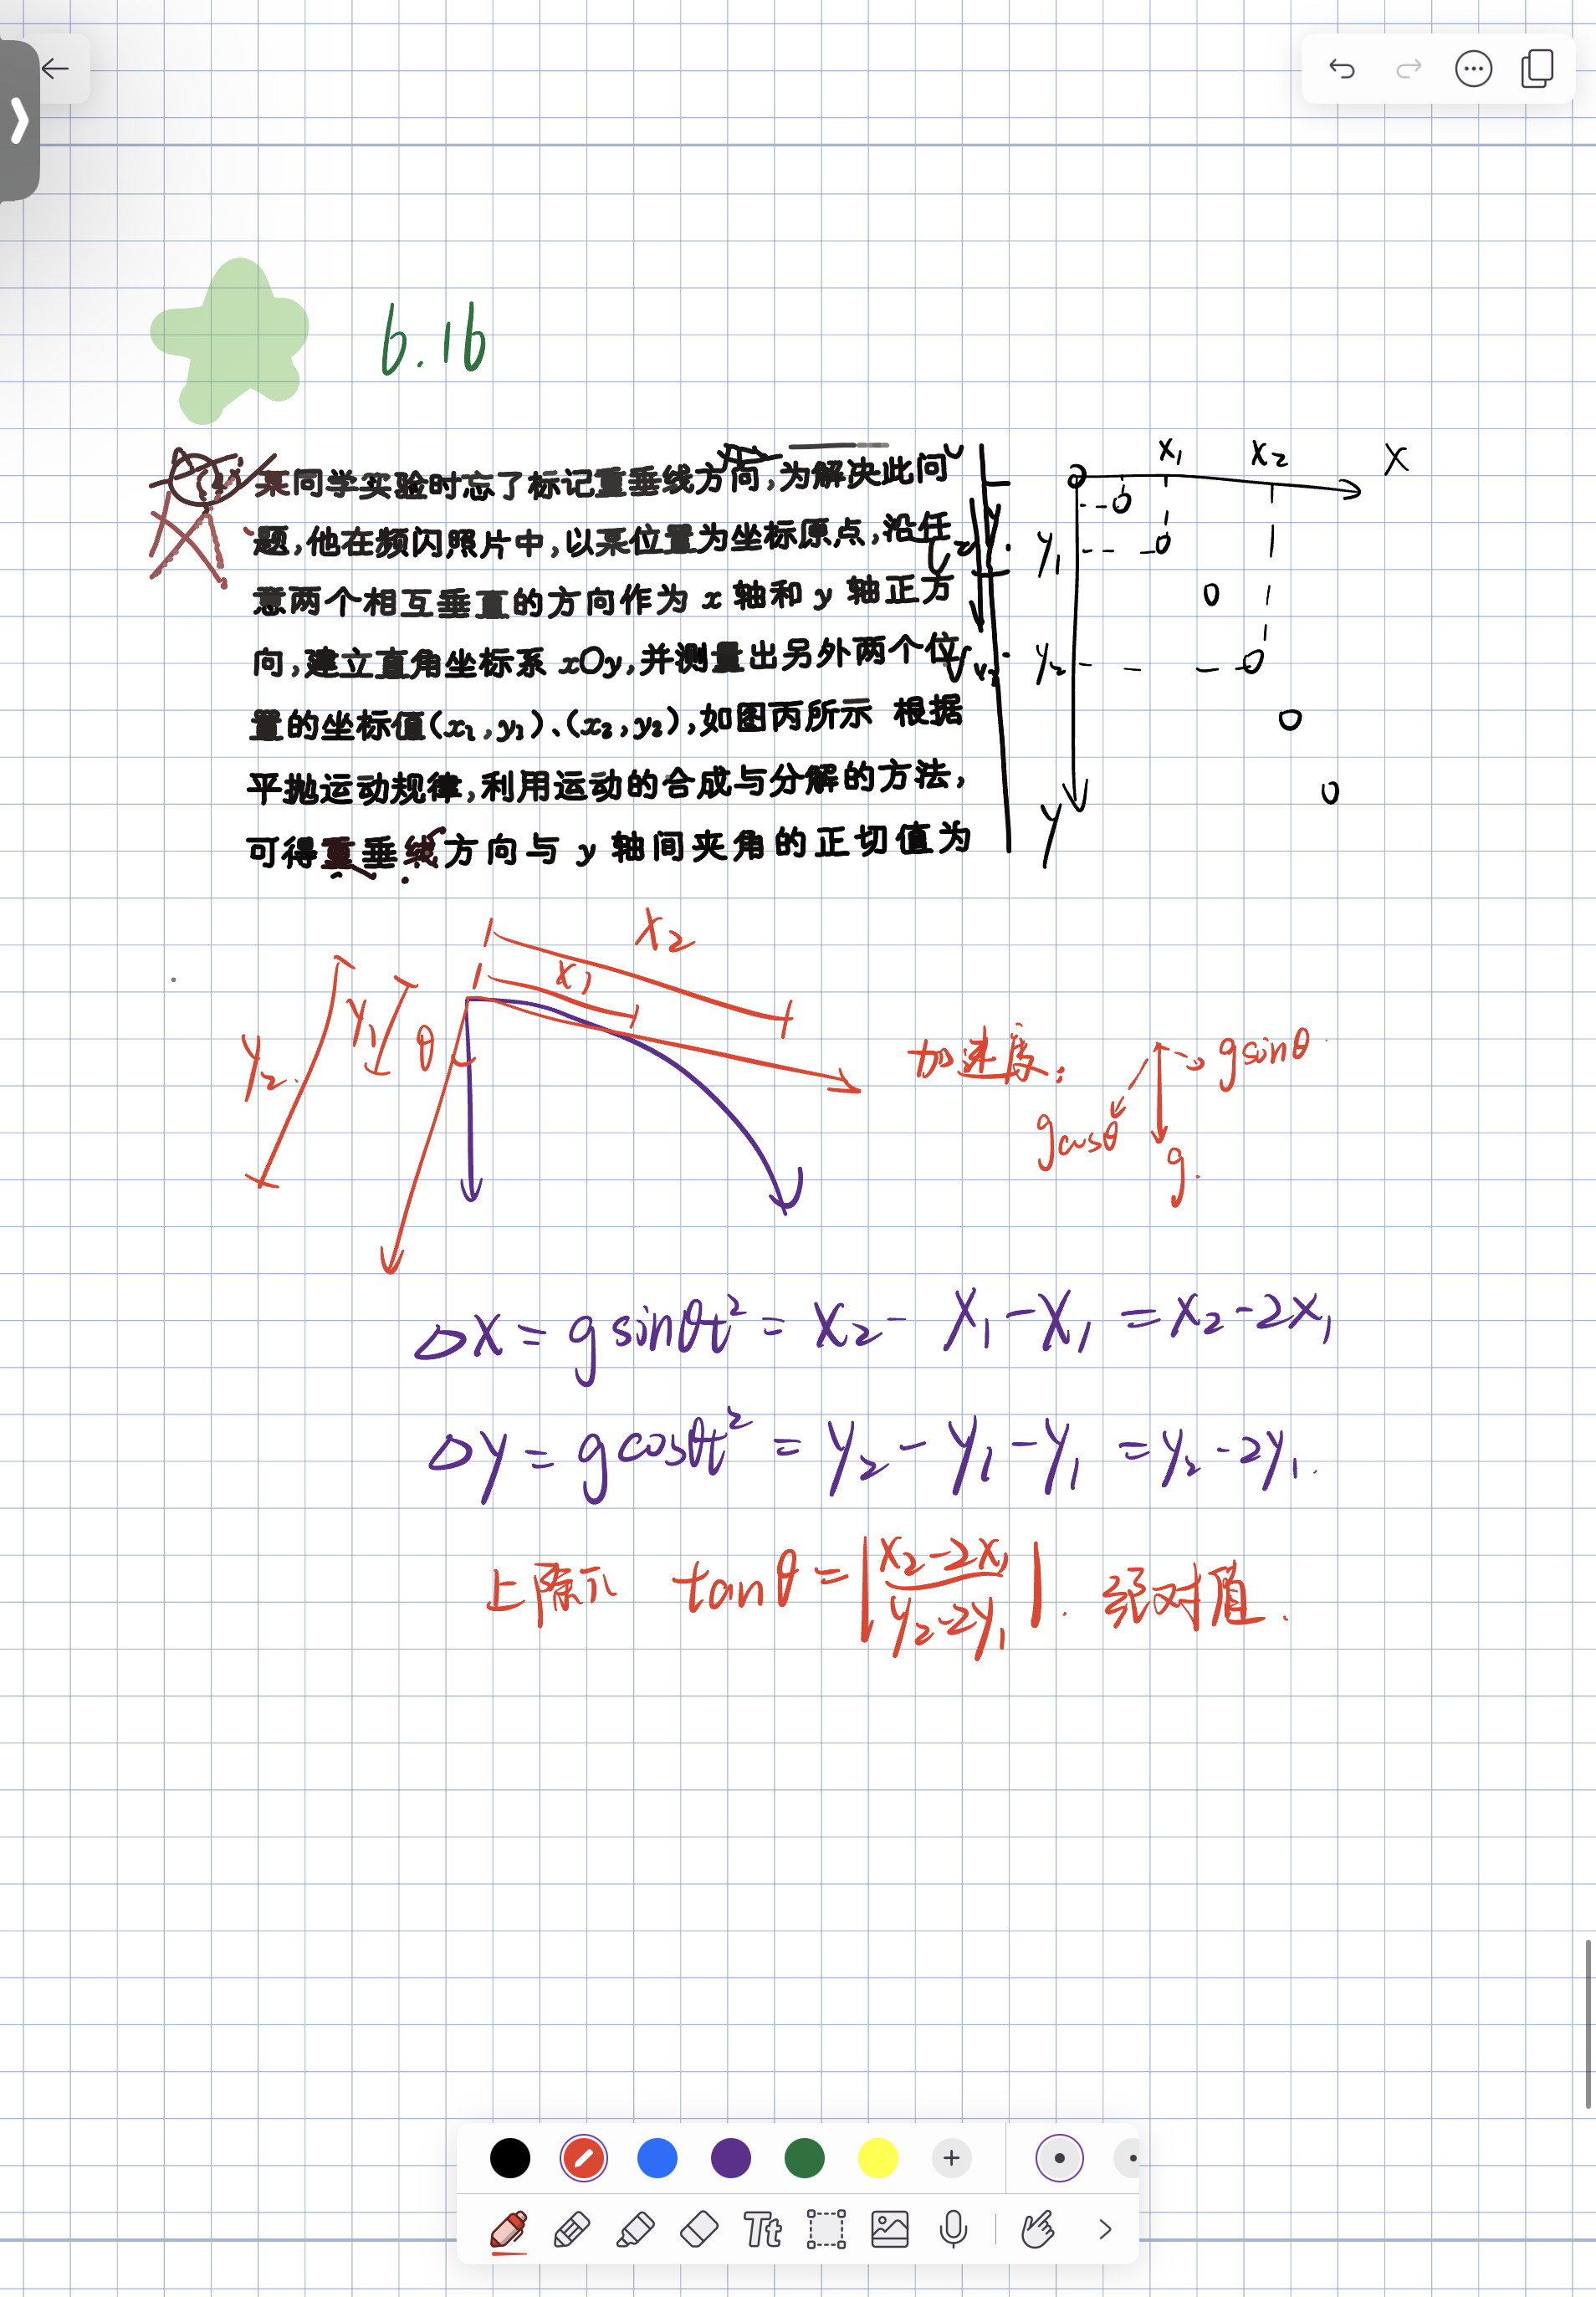 6.16
某同学实验时忘了标记重垂线方向,为解决此问
题,他在频闪照片中,以某位置为坐标原点,沿任
意两个相互垂直的方向作为 x 轴和 y 轴正方
向,建立直角坐标系 xOy,并测量出另外两个位
置的坐标值(x₁,y₁)、(x₂,y₂),如图丙所示 根据
平抛运动规律,利用运动的合成与分解的方法,
可得重垂线方向与 y 轴间夹角的正切值为
x₁ x₂ x
y₁
y₂
y
x₂
x₁
y₁
θ
y₂
加速度:
gsinθ
gcosθ
g
Δx = g sinθt² = x₂ - x₁ - x₁ = x₂ - 2x₁
Δy = g cosθt² = y₂ - y₁ - y₁ = y₂ - 2y₁.
tanθ = |(x₂-2x₁)/(y₂-2y₁)|. 绝对值.
Tt